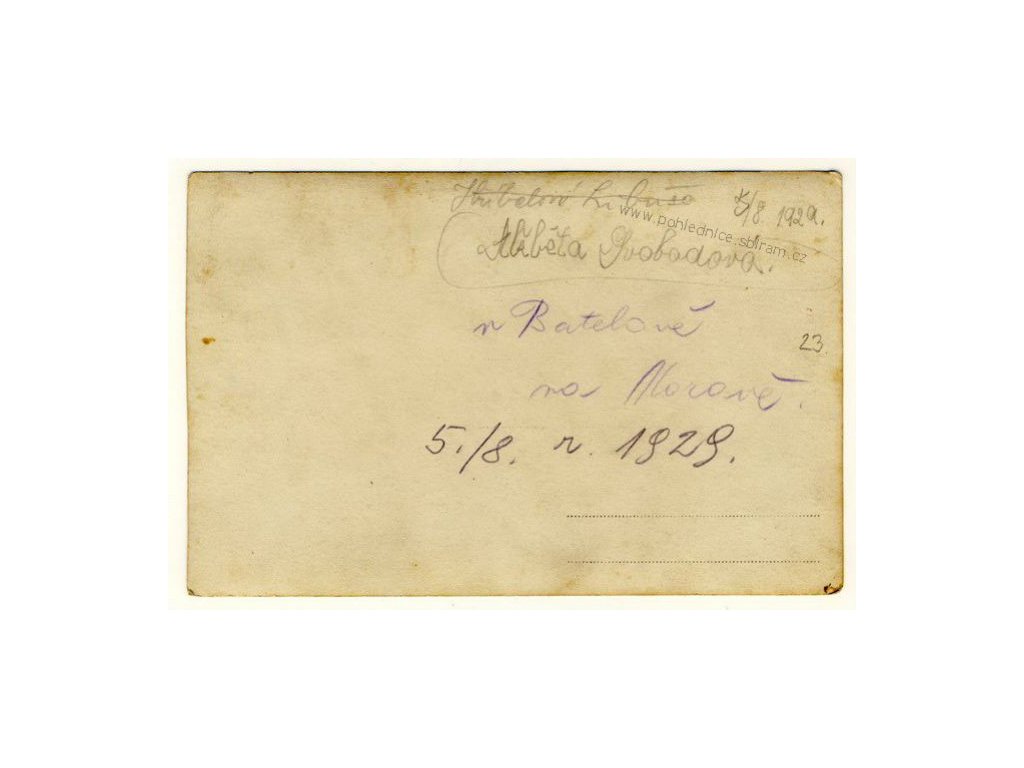 Libuše 5/8. 1929.
www.pohlednice.sbiram.cz
Alžběta Svobodová.
v Batelově
23.
na Moravě.
5./8. r. 1929.